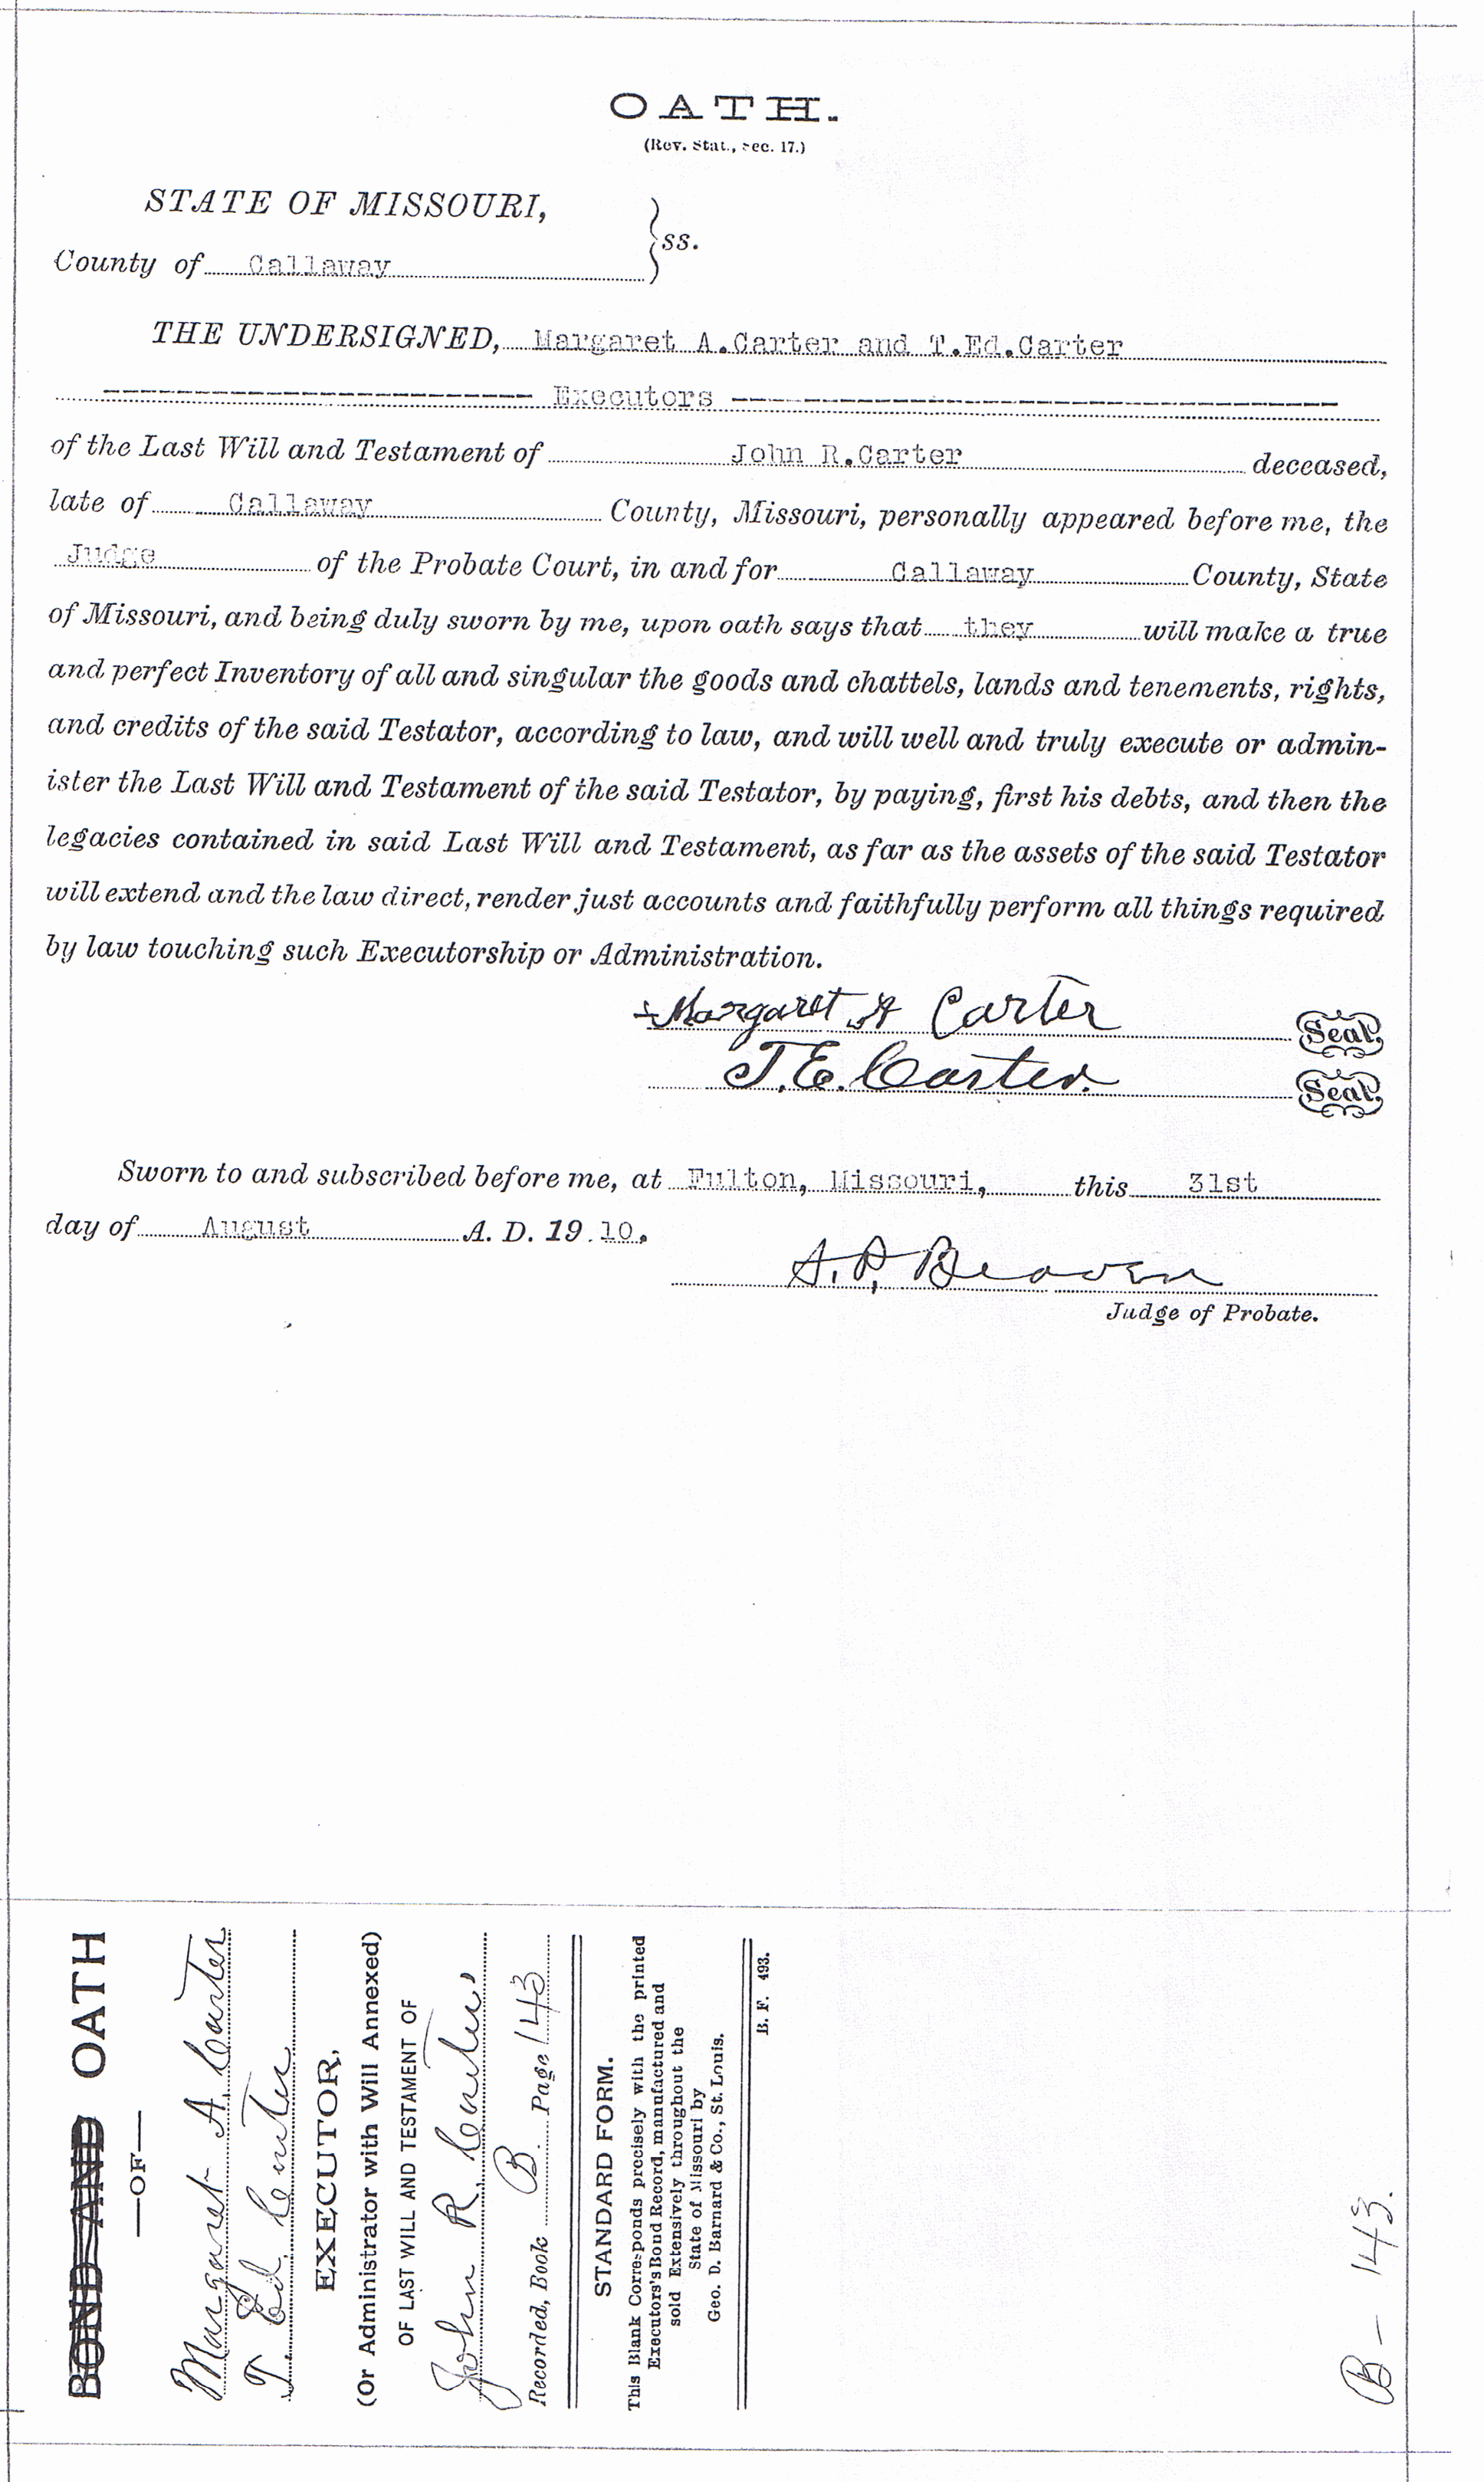 OATH.
(Rev. Stat., sec. 17.)
STATE OF MISSOURI,
ss.
County of Callaway
THE UNDERSIGNED, Margaret A.Carter and T.Ed.Carter
Executors
of the Last Will and Testament of John R.Carter deceased,
late of Callaway County, Missouri, personally appeared before me, the
Judge of the Probate Court, in and for Callaway County, State
of Missouri, and being duly sworn by me, upon oath says that they will make a true
and perfect Inventory of all and singular the goods and chattels, lands and tenements, rights,
and credits of the said Testator, according to law, and will well and truly execute or admin-
ister the Last Will and Testament of the said Testator, by paying, first his debts, and then the
legacies contained in said Last Will and Testament, as far as the assets of the said Testator
will extend and the law direct, render just accounts and faithfully perform all things required
by law touching such Executorship or Administration.
Margaret A Carter Seal.
T.E. Carter. Seal.
Sworn to and subscribed before me, at Fulton, Missouri, this 31st
day of August A. D. 19 10.
A. P. Beaven
Judge of Probate.
BOND AND OATH
—OF—
Margaret A. Carter
T. Ed. Carter
EXECUTOR,
(Or Administrator with Will Annexed)
OF LAST WILL AND TESTAMENT OF
John R. Carter
Recorded, Book B. Page 143
STANDARD FORM.
This Blank Corresponds precisely with the printed
Executors's Bond Record, manufactured and
sold Extensively throughout the
State of Missouri by
Geo. D. Barnard & Co., St. Louis.
B. F. 493.
B - 143.